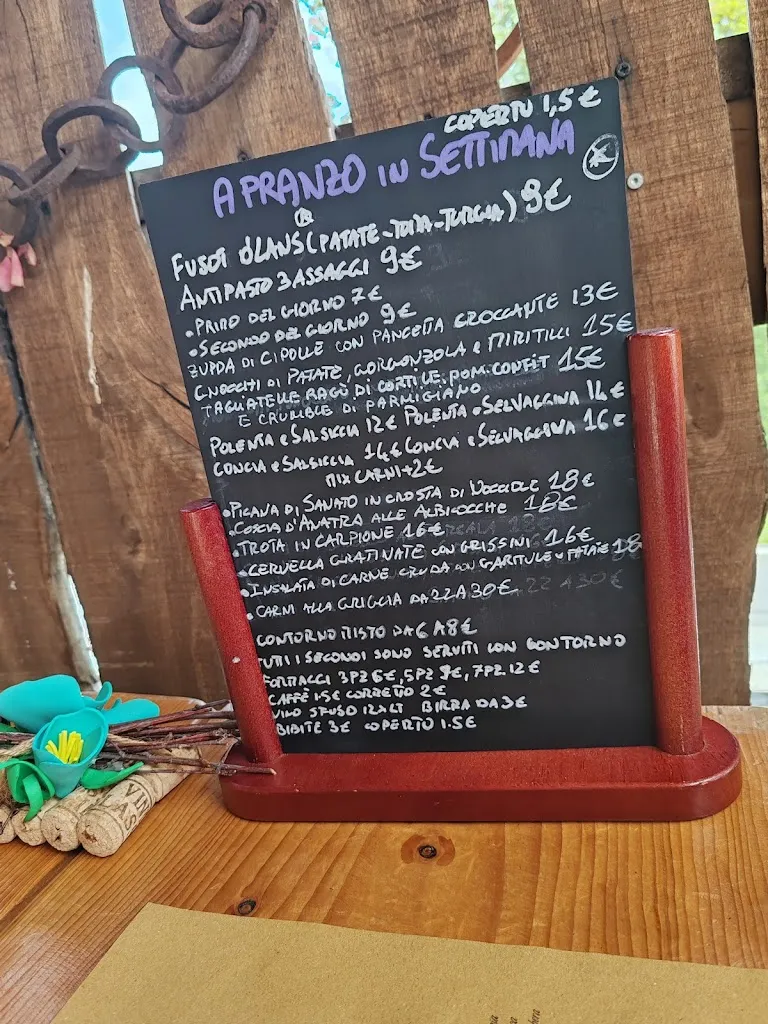 COPERTO 1,5€
A PRANZO IN SETTIMANA
ANTIPASTO 3 ASSAGGI 9€
• PRIMO DEL GIORNO 7€
• SECONDO DEL GIORNO 9€
ZUPPA DI CIPOLLE CON PANCETTA CROCCANTE 13€
GNOCCHI DI PATATE, GORGONZOLA e MIRTILLI 15€
TAGLIATELLE RAGÙ DI CORTILE, POM. CONFIT 15€
E CRUMBLE DI PARMIGIANO
POLENTA e SALSICCIA 12€ POLENTA e SELVAGGINA 14€
CONCIA e SALSICCIA 14€ CONCIA e SELVAGGINA 16€
MIX CARNI +2€
• PICANA DI SANATO IN CROSTA DI NOCCIOLE 18€
• COSCIA D'ANATRA ALLE ALBICOCCHE 18€
• TROTA IN CARPIONE 16€
• CERVELLA GRATINATE CON GRISSINI 16€
• INSALATA DI CARNE CRUDA CON PATATE 18
• CARNI ALLA GRIGLIA DA 22 A 30€
CONTORNO MISTO DA 6 A 8€
TUTTI I SECONDI SONO SERVITI CON CONTORNO
FORMAGGI 3PZ 6€, 5PZ 9€, 7PZ 12€
CAFFÈ 1.5€ CORRETTO 2€
VINO SFUSO 12€ LT BIRRA DA 3€
BIBITE 3€ COPERTO 1.5€